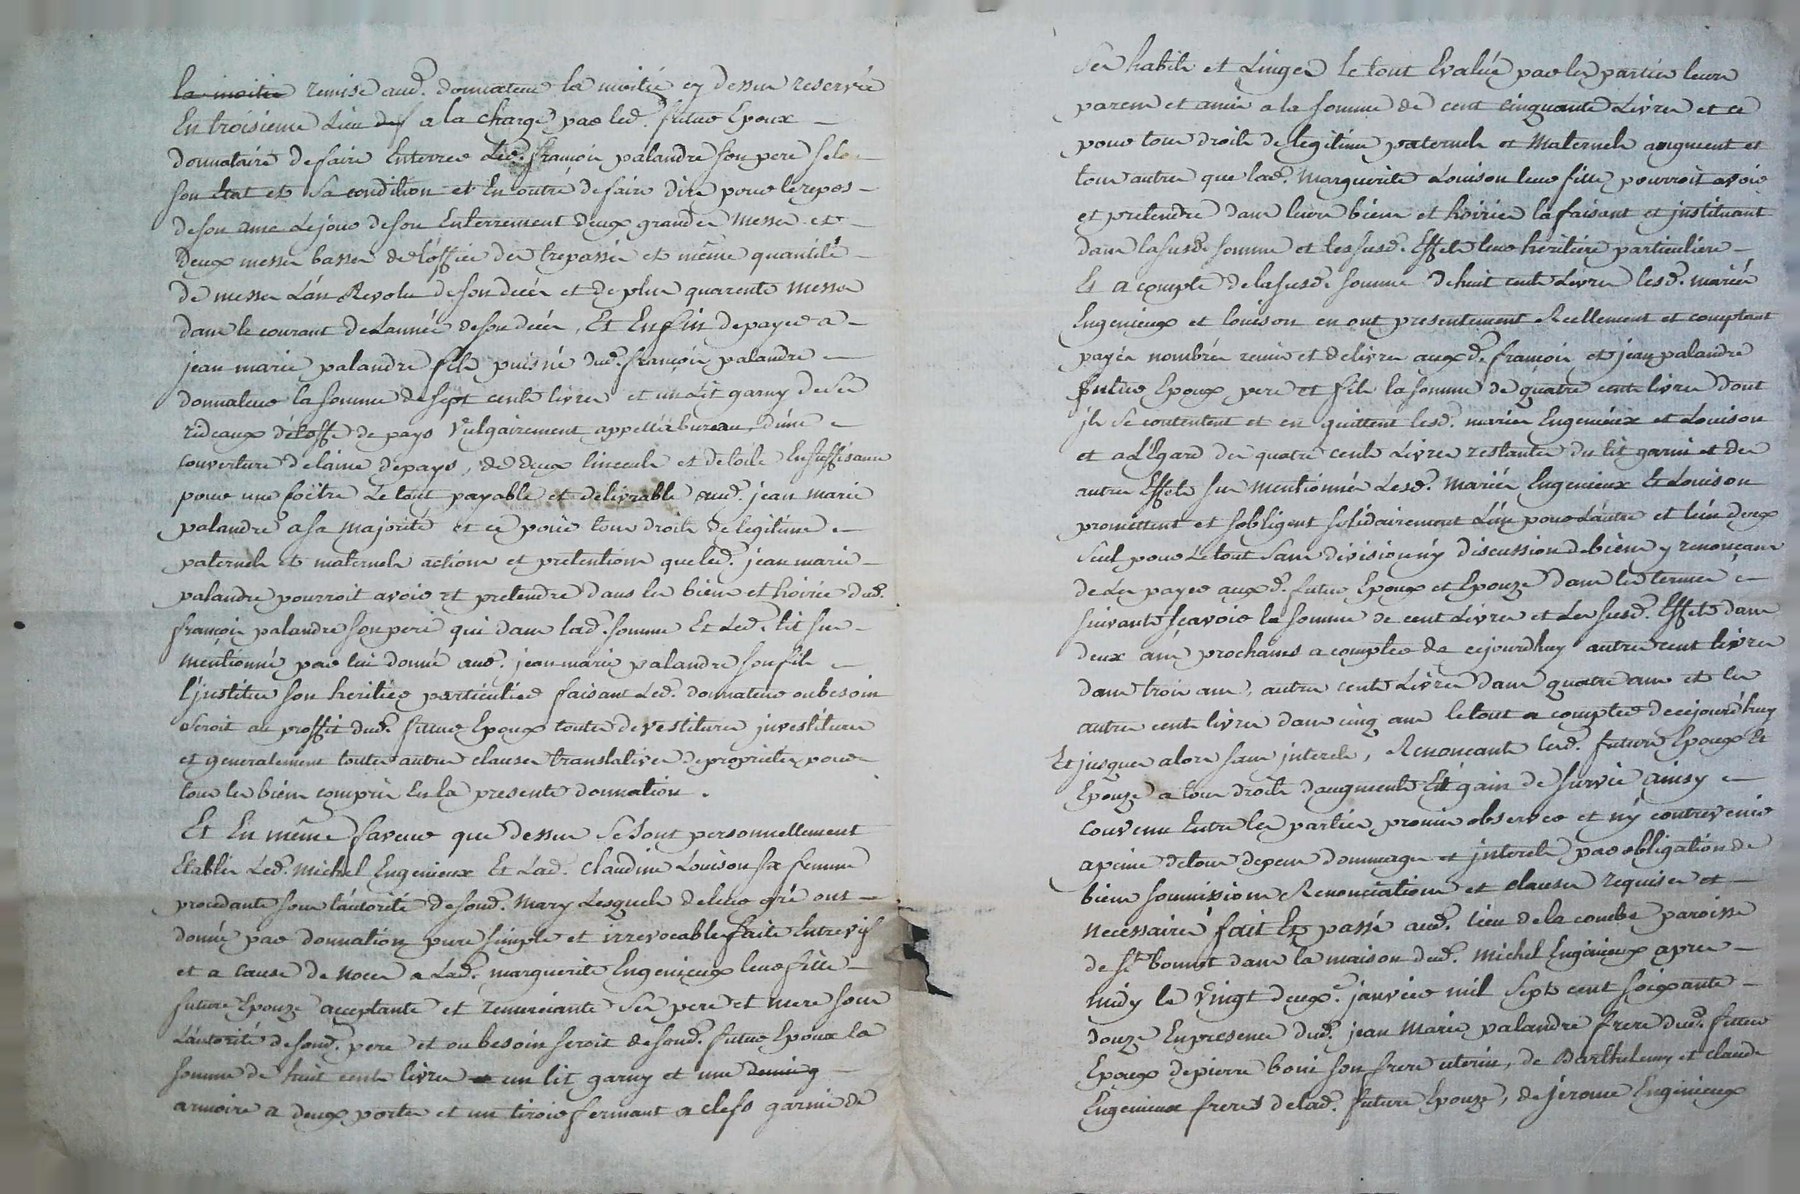 la moitie remise aud. donnateur la moitié cy dessus reservée
En troisieme Lieu a la charge par led. futur Epoux
donnataire de faire Enterrer Led. françois palandre son pere selon
son Etat et Sa condition et En outre de faire dire pour le repos
de son ame Le jour de son Enterrement deux grandes Messes et
Deux messes basses de l'office des trepassés et même quantité
de messes L'an Revolu de son decès et de plus quarente messes
dans le courant de L'année de son decès, Et Enfin de payer a
jean marie palandre fils puisné dud. françois palandre
donnateur la somme de sept cents livres et un Lit garny de Ses
rideaux d'étoffe de pays vulgairement appellé bureau, d'une
couverture de laine de pays, de deux linceuls et de toile En suffisance
pour une foître Le tout payable et delivrable aud. jean marie
palandre a sa majorité et ce pour tous droits de legitime
paternels et maternels actions et pretentions que led. jean marie
palandre pourroit avoir et pretendre dans les biens et hoirie dud.
françois palandre son pere qui dans lad. somme Et Led. lit sus
mentionné par lui donné aud. jean marie palandre son fils
L'institue son heritier particulier faisant Led. donnateur ou besoin
Seroit au proffit dud. futur Epoux toutes devestitures investitures
et generalement toutes autres clauses translatives de proprieté pour
tous les biens compris En la presente donnation.
Et En même faveur que dessus Se Sont personnellement
Etablis Led. Michel Engenieux Et Lad. Claudine Louison Sa femme
procedante sous l'autorité de sond. Mary Lesquels de leur gré ont
donné par donnation pure simple et irrevocable faite Entre vifs
et a cause de noces a Lad. marguerite Engenieux leur fille
future Epouze acceptante et remerciante Ses pere et mere sous
L'autorité de sond. pere et ou besoin seroit de sond. futur Epoux la
somme de huit cents livres un lit garny et une
armoire a deux portes et un tiroir fermant a clefs garnie de
Ses habits et Linges le tout Evalué par les parties leurs
parens et amis a la somme de cent cinquante Livres et ce
pour tous droits de legitime paternels et Maternels augment et
tous autres que lad. Marguerite Louison leur fille pourroit avoir
et pretendre dans leurs biens et hoiries la faisant et instituant
dans la susd. somme et les susd. Effets leur heritiere particuliere
Et a compte de la susd. somme de huit cents Livres lesd. mariés
Engenieux et louison en ont presentement Reellement et comptant
payés nombrés remis et delivrés auxd. françois et jean palandre
futur Epoux pere et fils la somme de quatre cents livres dont
ils Se contentent et en quittent lesd. mariés Engenieux et Louison
et a L'Egard des quatre cents Livres restantes du lit garni et des
autres Effets sus mentionnés Lesd. Mariés Engenieux Et Louison
promettent et s'obligent solidairement L'un pour L'autre et l'un d'eux
Seul pour Le tout Sans division ny discussion de biens y renonçant
de les payer auxd. futurs Epoux et Epouze dans les termes
suivants sçavoir la somme de cent Livres et Les susd. Effets dans
deux ans prochains a compter de cejourd'huy autres cent livres
dans trois ans, autres cents Livres dans quatre ans et les
autres cent livres dans cinq ans le tout a compter de cejourd'huy
Et jusques alors sans interets, Renonceants lesd. futurs Epoux Et
Epouze a tous droits d'augments Et gain de survie ainsy
convenu Entre les parties promis observer et n'y contrevenir
a peine de tous depens dommages et interets par obligation de
biens soumissions Renonciations et clauses requises et
necessaires fait Et passé aud. lieu de la combe paroisse
de St. bonnet dans la maison dud. Michel Engenieux apres
midy le vingt deux janvier mil Sept cent soixante
douze En presence dud. jean Marie palandre frere dud. futur
Epoux de pierre boni son frere uterin, de Barthelemy et claude
Engenieux freres de lad. future Epouze, de jerome Engenieux